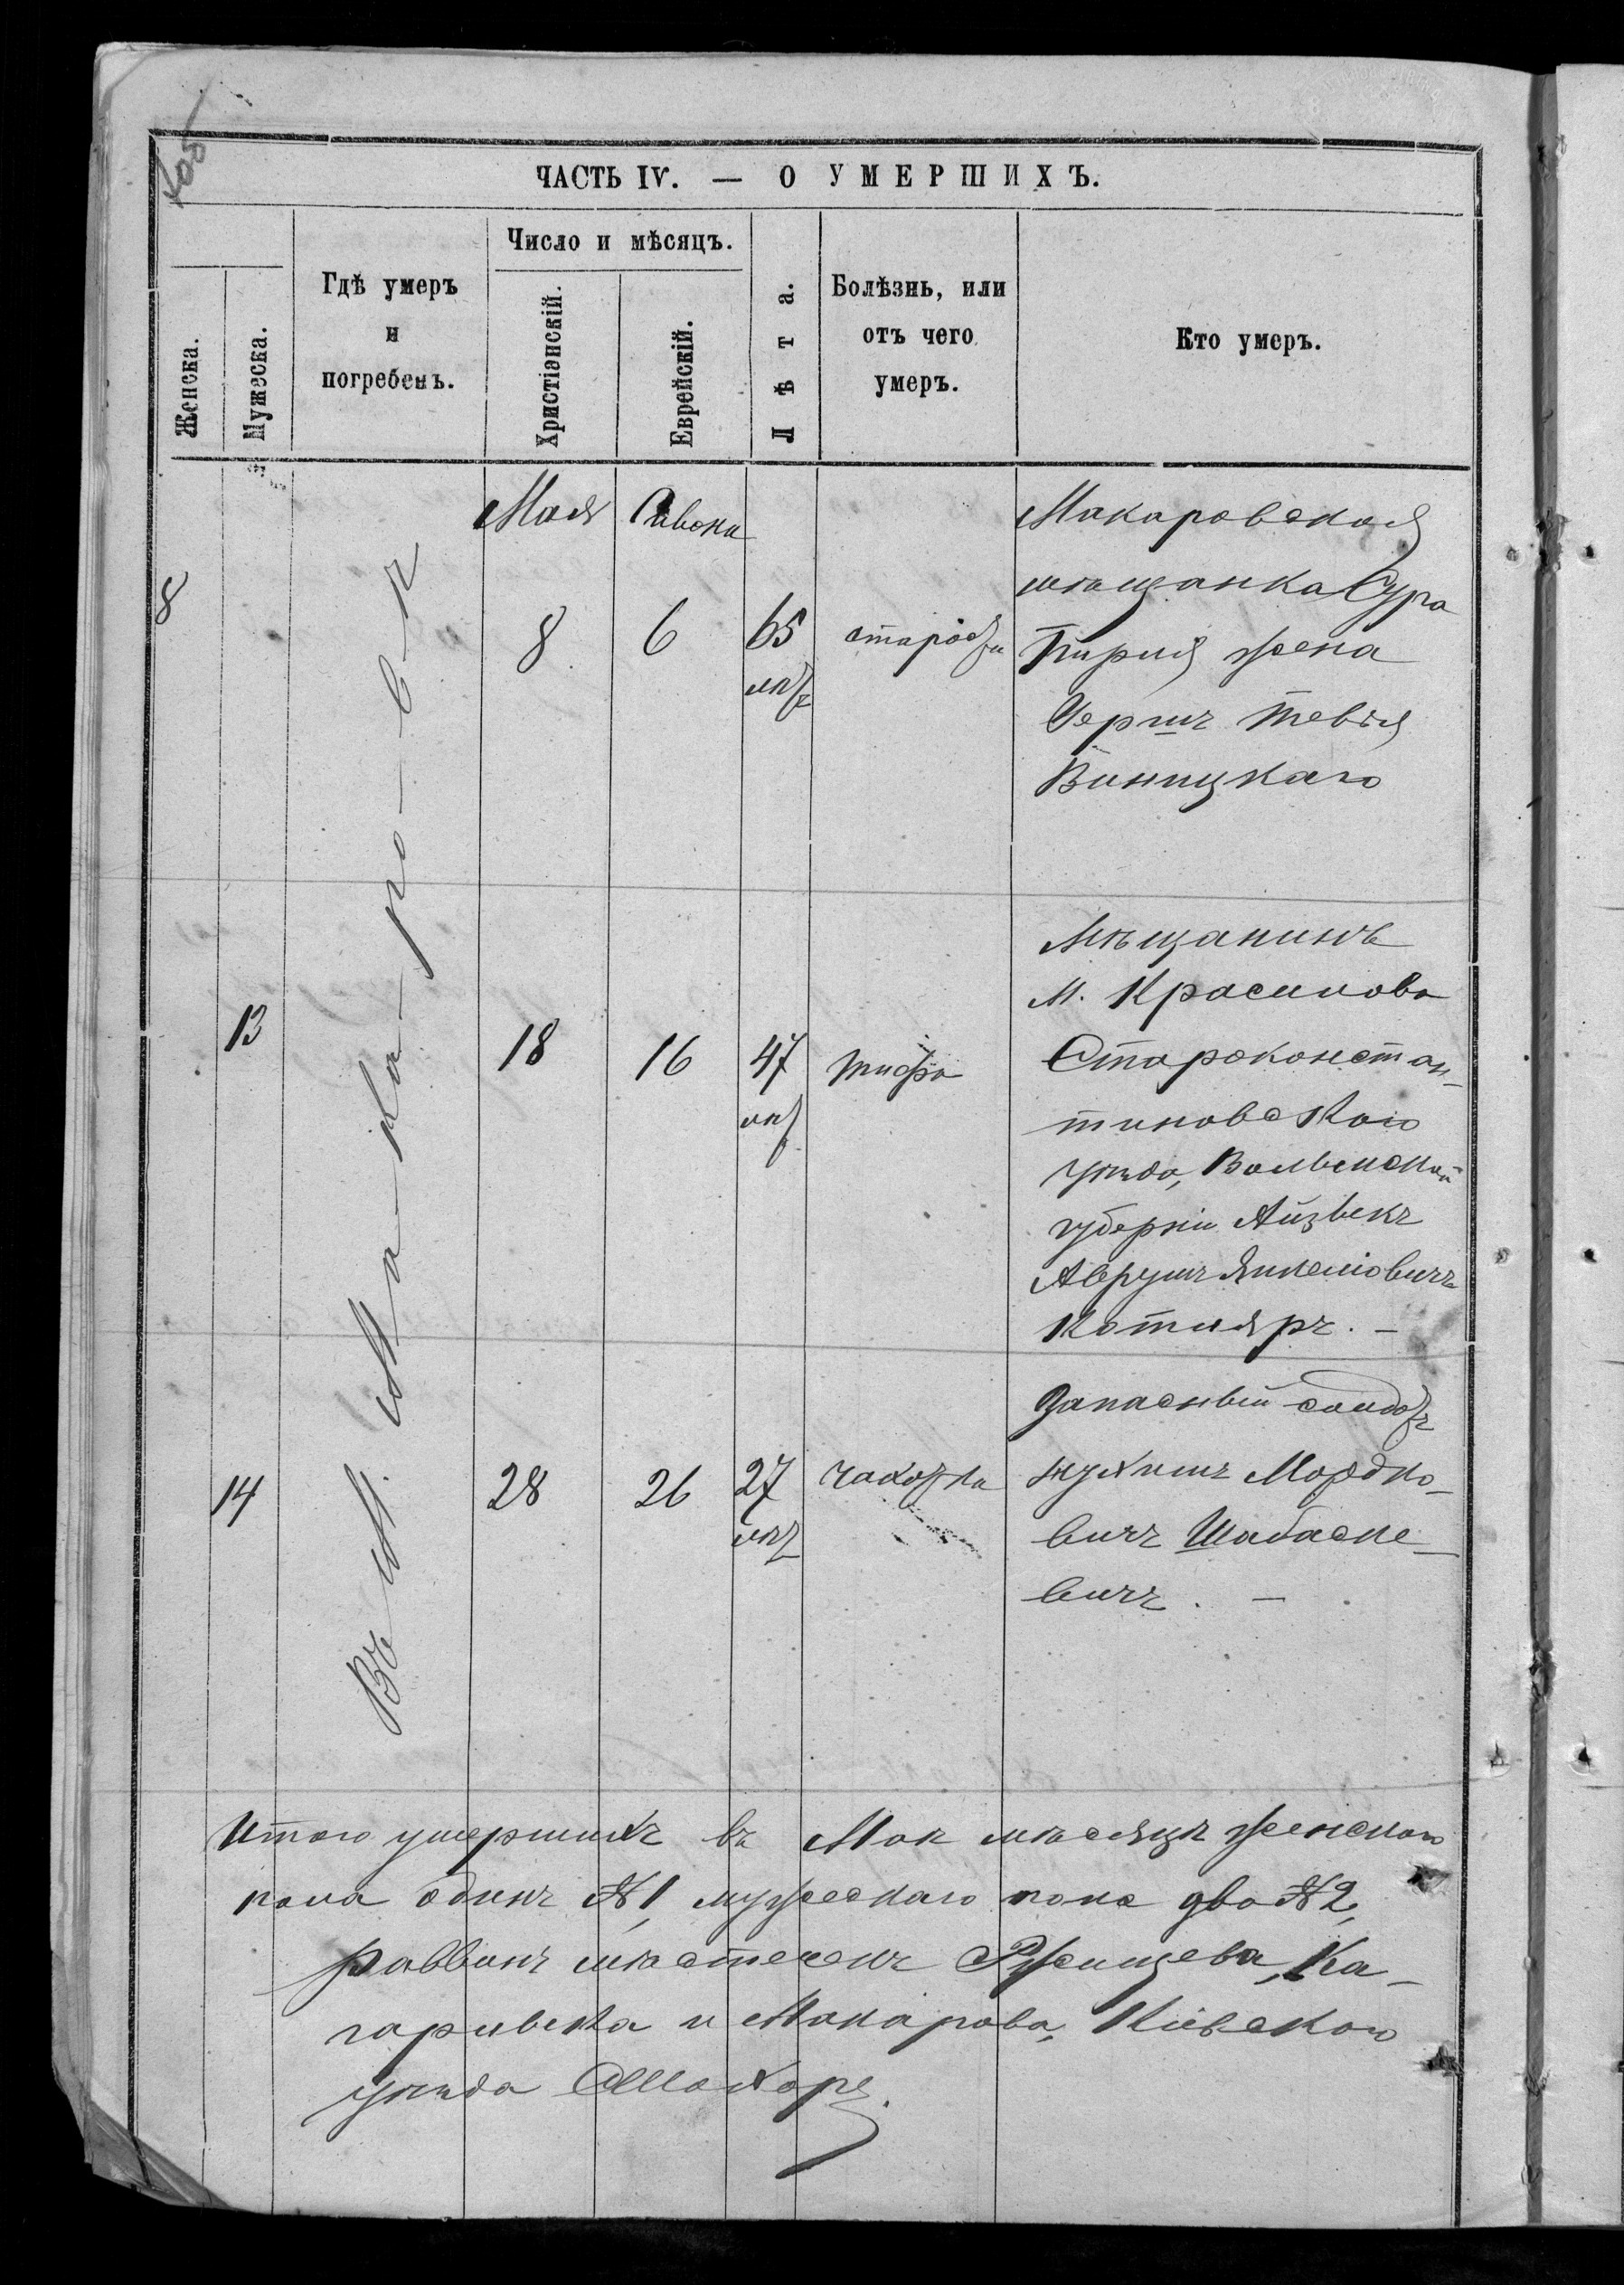 ЧАСТЬ IV. — О УМЕРШИХЪ.
Женска.
Мужеска.
Гдѣ умеръ
и
погребенъ.
Число и мѣсяцъ.
Христіанскій.
Еврейскій.
Лѣта.
Болѣзнь, или
отъ чего
умеръ.
Кто умеръ.
Въ М. Ма-ка-ро-вѣ
Мая Сивона
8 8 6 65 лѣт старости
Макаровская
мѣщанка Сура
Пирля жена
Герша Тевія
Виницкаго
13 18 16 47 лѣт тифа
Мѣщанинъ
м. Красилова
Староконстан-
тиновскаго
уѣзда, Волынской
губерніи Айзыкъ
Аврумъ Янкеліовичъ
Котляръ. —
14 28 26 27 лѣт чахотки
Запасный солдатъ
Мордко-
вичъ Шабаске-
вичъ. —
Итого умершихъ въ Маѣ мѣсяцѣ женскаго
пола одинъ № 1, мужескаго пола два № 2,
Раввинъ мѣстечекъ Ржищева, Ка-
гарлыка и Макарова, Кіевскаго
уѣзда